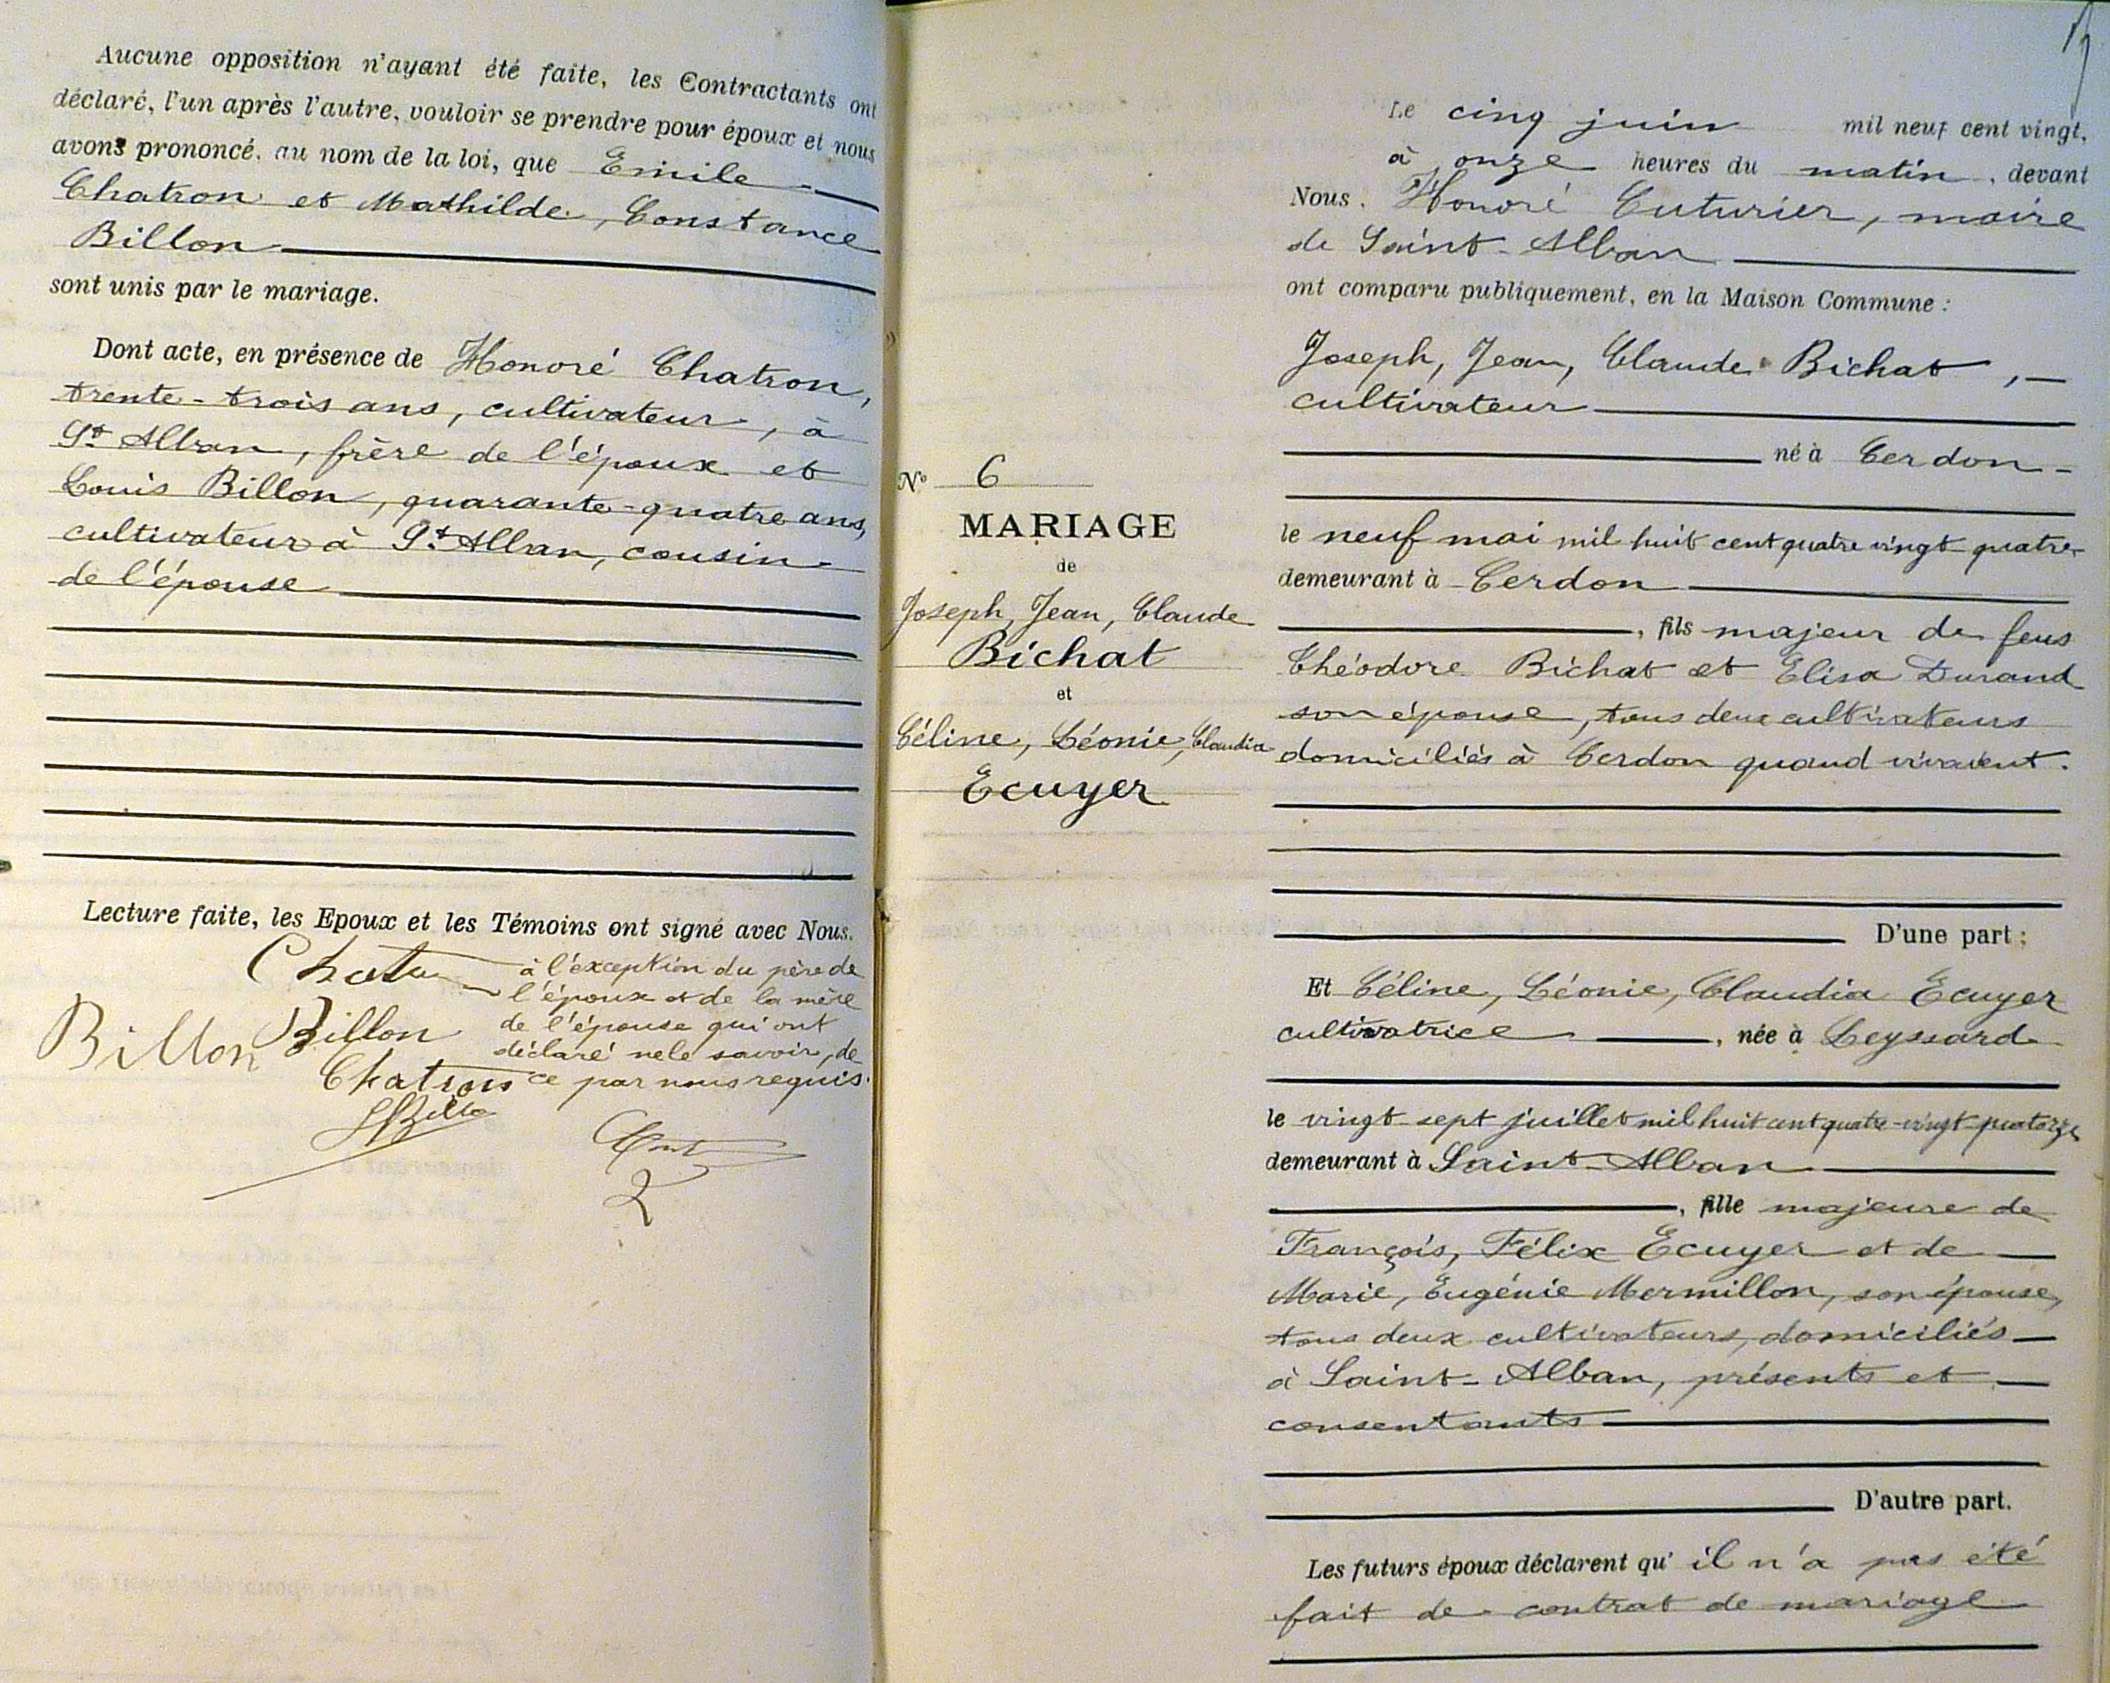 Aucune opposition n'ayant été faite, les Contractants ont
déclaré, l'un après l'autre, vouloir se prendre pour époux et nous
avons prononcé, au nom de la loi, que Emile
Chatron et Mathilde, Constance
Billon
sont unis par le mariage.
Dont acte, en présence de Honoré Chatron,
trente-trois ans, cultivateur, à
St Alban, frère de l'époux et
Louis Billon, quarante-quatre ans,
cultivateur à St Alban, cousin
de l'épouse
Lecture faite, les Epoux et les Témoins ont signé avec Nous.
à l'exception du père de
l'époux et de la mère
de l'épouse qui ont
déclaré ne le savoir, de
ce par nous requis.
Billon Billon
Chatron
Nº 6
MARIAGE
de
Joseph, Jean, Claude
Bichat
et
Céline, Léonie, Claudia
Ecuyer
Le cinq juin mil neuf cent vingt,
à onze heures du matin, devant
Nous, Honoré Cuturier, maire
de Saint-Alban
ont comparu publiquement, en la Maison Commune :
Joseph, Jean, Claude Bichat,
cultivateur
né à Cerdon
le neuf mai mil huit cent quatre vingt-quatre
demeurant à Cerdon
, fils majeur de feus
Théodore Bichat et Elisa Durand
son épouse, tous deux cultivateurs
domiciliés à Cerdon quand vivaient.
D'une part ;
Et Céline, Léonie, Claudia Ecuyer
cultivatrice, née à Leyssard
le vingt-sept juillet mil huit cent quatre-vingt-quatorze
demeurant à Saint-Alban
, fille majeure de
François, Félix Ecuyer et de
Marie, Eugénie Mermillon, son épouse,
tous deux cultivateurs, domiciliés
à Saint-Alban, présents et
consentants
D'autre part.
Les futurs époux déclarent qu'il n'a pas été
fait de contrat de mariage